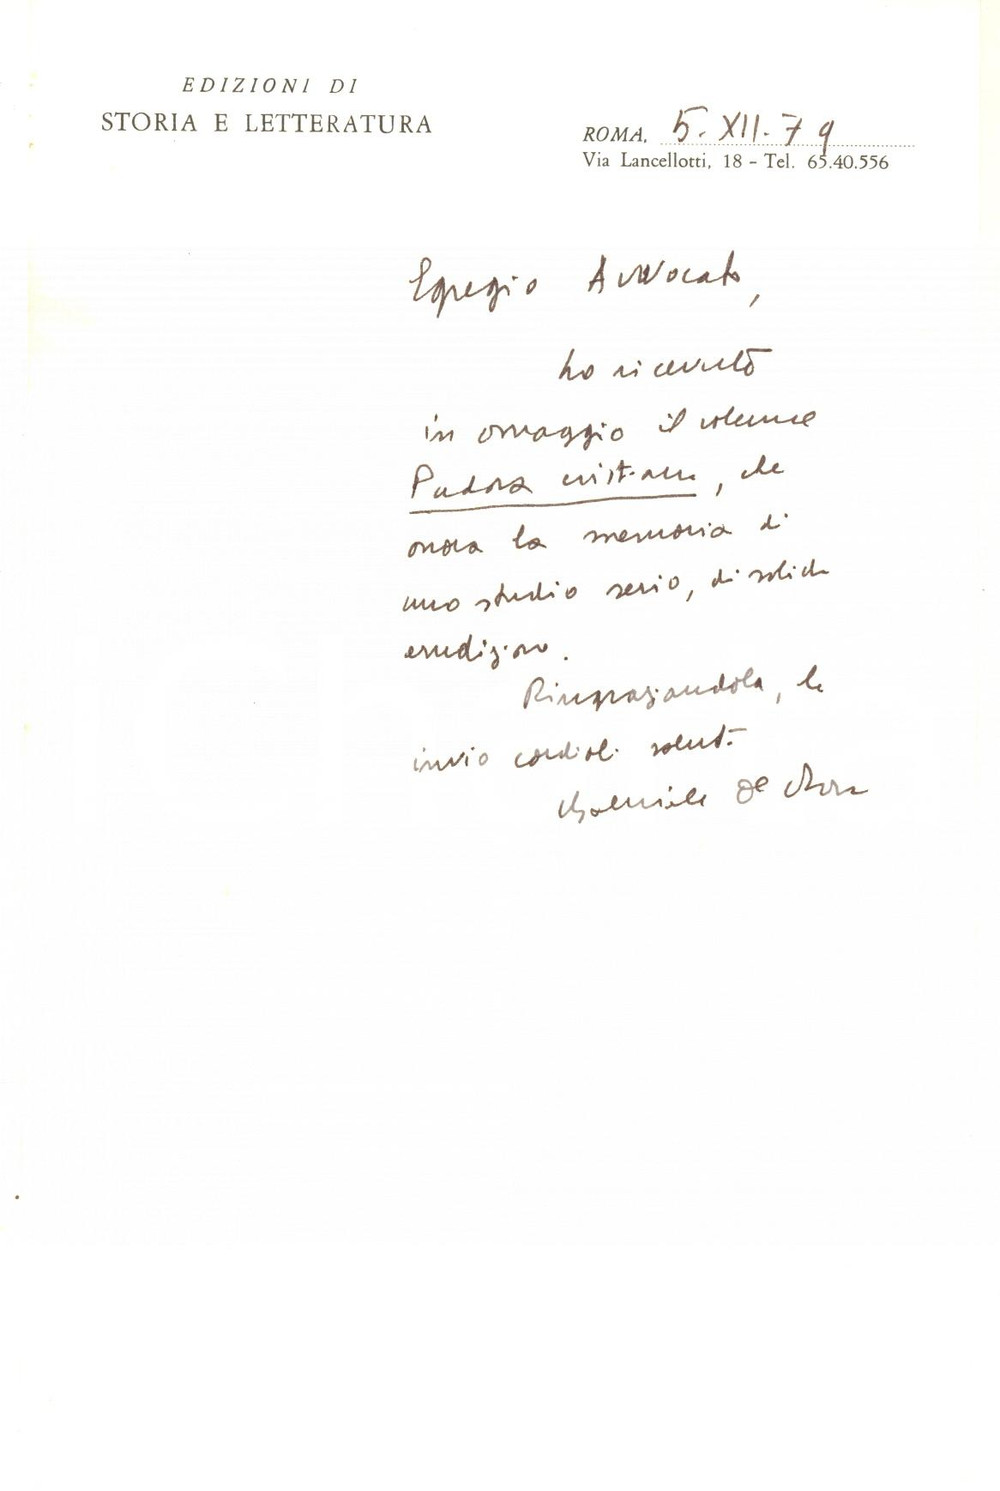 EDIZIONI DI
STORIA E LETTERATURA
ROMA, 5. XII. 79
Via Lancellotti, 18 - Tel. 65.40.556
Egregio Avvocato,
ho ricevuto
in omaggio il volume
Padova cristiana, che
onora la memoria di
uno studio serio, di solida
erudizione.
Ringraziandola, le
invio cordiali saluti.
Gabriele De Rosa